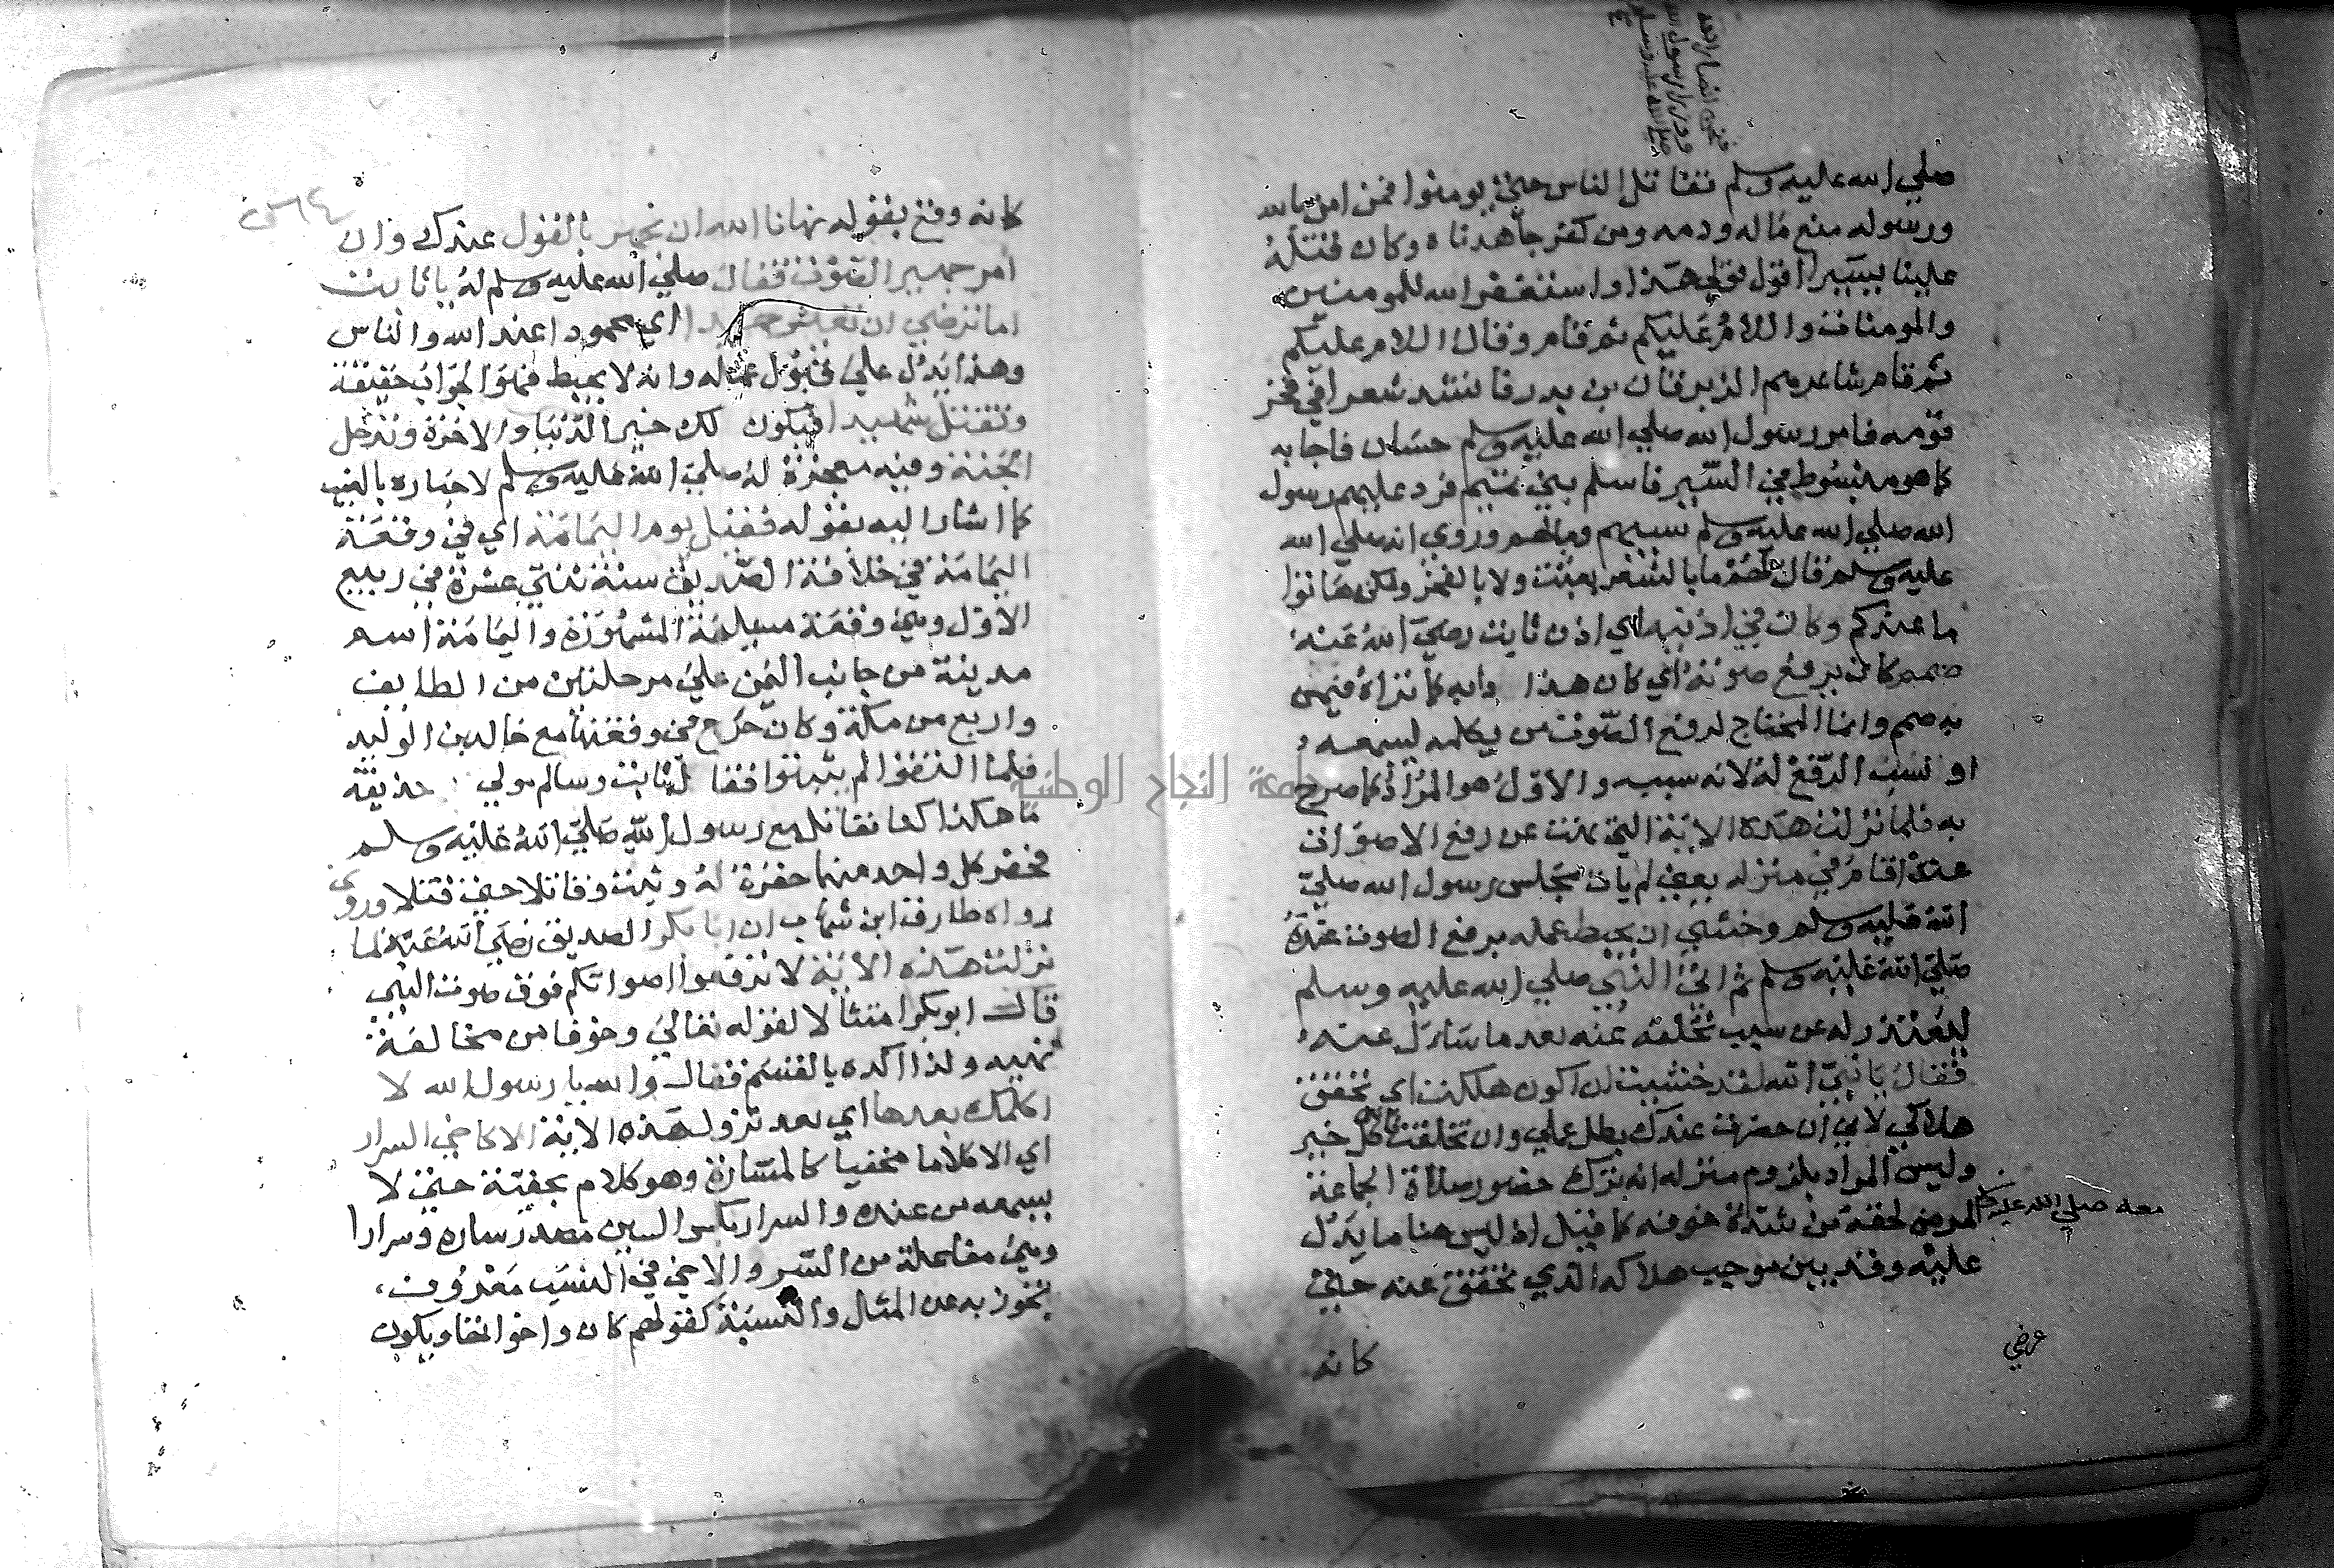 صلي الله عليه وسلم نقاتل الناس حتي يومنوا فمن امن بالله
ورسوله منع ماله ودمه ومن كفر جاهدناه وكان قتله
علينا يسيرا اقول قولي هذا واستغفر الله للمومنين
والمومنات والسلام عليكم ثم قام وقال السلام عليكم
ثم قام شاعرهم الزبرقان بن بدر فانشد شعرا في فخر
قومه فامر رسول الله صلي الله عليه وسلم حسان فاجابه
كما هو مبسوط في السير فاسلم بني تميم فرد عليهم رسول
الله صلي الله عليه وسلم سبيهم ومالهم وروي انه صلي الله
عليه وسلم قال لهم ما بالشعر بعثت ولا بالفخر ولكن هاتوا
ما عندكم وكان في اذنيه اي اذن ثابت رضي الله عنه
صمم كان يرفع صوته اي كان هذا دابه كما نراه فيمن
به صمم وانما المحتاج لرفع الصوت من يكلمه ليسمعه
او نسب الرفع له لانه سببه والاول هو المراد كما صرح
به فلما نزلت هذه الاية التي نهت عن رفع الاصوات
عنده اقام في منزله يعني لم يات مجلس رسول الله صلي
الله عليه وسلم وخشي ان يحبط عمله برفع الصوت عنده
صلي الله عليه وسلم ثم اتي النبي صلي الله عليه وسلم
ليعتذر له عن سبب تخلفه عنه بعد ما سأل عنه
فقال يا نبي الله لقد خشيت ان اكون هلكت اي تحقق
هلاكي لاني ان حضرت عندك بطل عملي وان تخلفت فاتني كل خير
وليس المراد بلزوم منزله انه ترك حضور صلاة الجماعة
معه صلي الله عليه وسلم
لمرض لحقه من شدة خوفه كما قيل اذ ليس هنا ما يدل
عليه وقد بين موجب هلاكه الذي تحقق عنه حتي
كانه
كانه وقع بقوله نهانا الله ان نجهر بالقول عندك وان
امر جهير الصوت فقال صلي الله عليه وسلم له يا ثابت
اما ترضي ان تعيش حميدا اي محمودا عند الله والناس
وهذا يدل علي قبول عمله وانه لا يحبط فهو الجواب حقيقة
وتقتل شهيدا فيكون لك خير الدنيا والاخرة وتدخل
الجنة وفيه معجزة له صلي الله عليه وسلم لاخباره بالغيب
كما اشار اليه بقوله فقتل يوم اليمامة اي في وقعة
اليمامة في خلافة الصديق سنة ثنتي عشرة في ربيع
الاول وهي وقعة مسيلمة المشهورة واليمامة اسم
مدينة من جانب اليمن علي مرحلتين من الطايف
واربع من مكة وكان خرج في وقعتها مع خالد بن الوليد
فلما التقوا لم يثبتوا فقال ثابت وسالم مولي حذيفة
ما هكذا كنا نقاتل مع رسول الله صلي الله عليه وسلم
فحفر كل واحد منهما حفرة له وثبت وقاتلا حتي قتلا وروي
رواه طارق ابن شهاب ان ابا بكر الصديق رضي الله عنه لما
نزلت هذه الاية لا ترفعوا اصواتكم فوق صوت النبي
قال ابو بكر امتثالا لقوله تعالي وخوفا من مخالفة
نهيه ولذا اكده بالقسم فقال والله يا رسول الله لا
اكلمك بعدها اي بعد نزول هذه الاية الا كاخي السرار
اي الا كلاما مخفيا كالمسارة وهو كلام بخفية حتي لا
يسمعه من عنده والسرار بكسر السين مصدر ساره وسرارا
وهي مفاعلة من السر والاخ في النسب معروف
تجوز به عن المثال والنسبة كقولهم كان واخو انتفا ويكون
عرضي